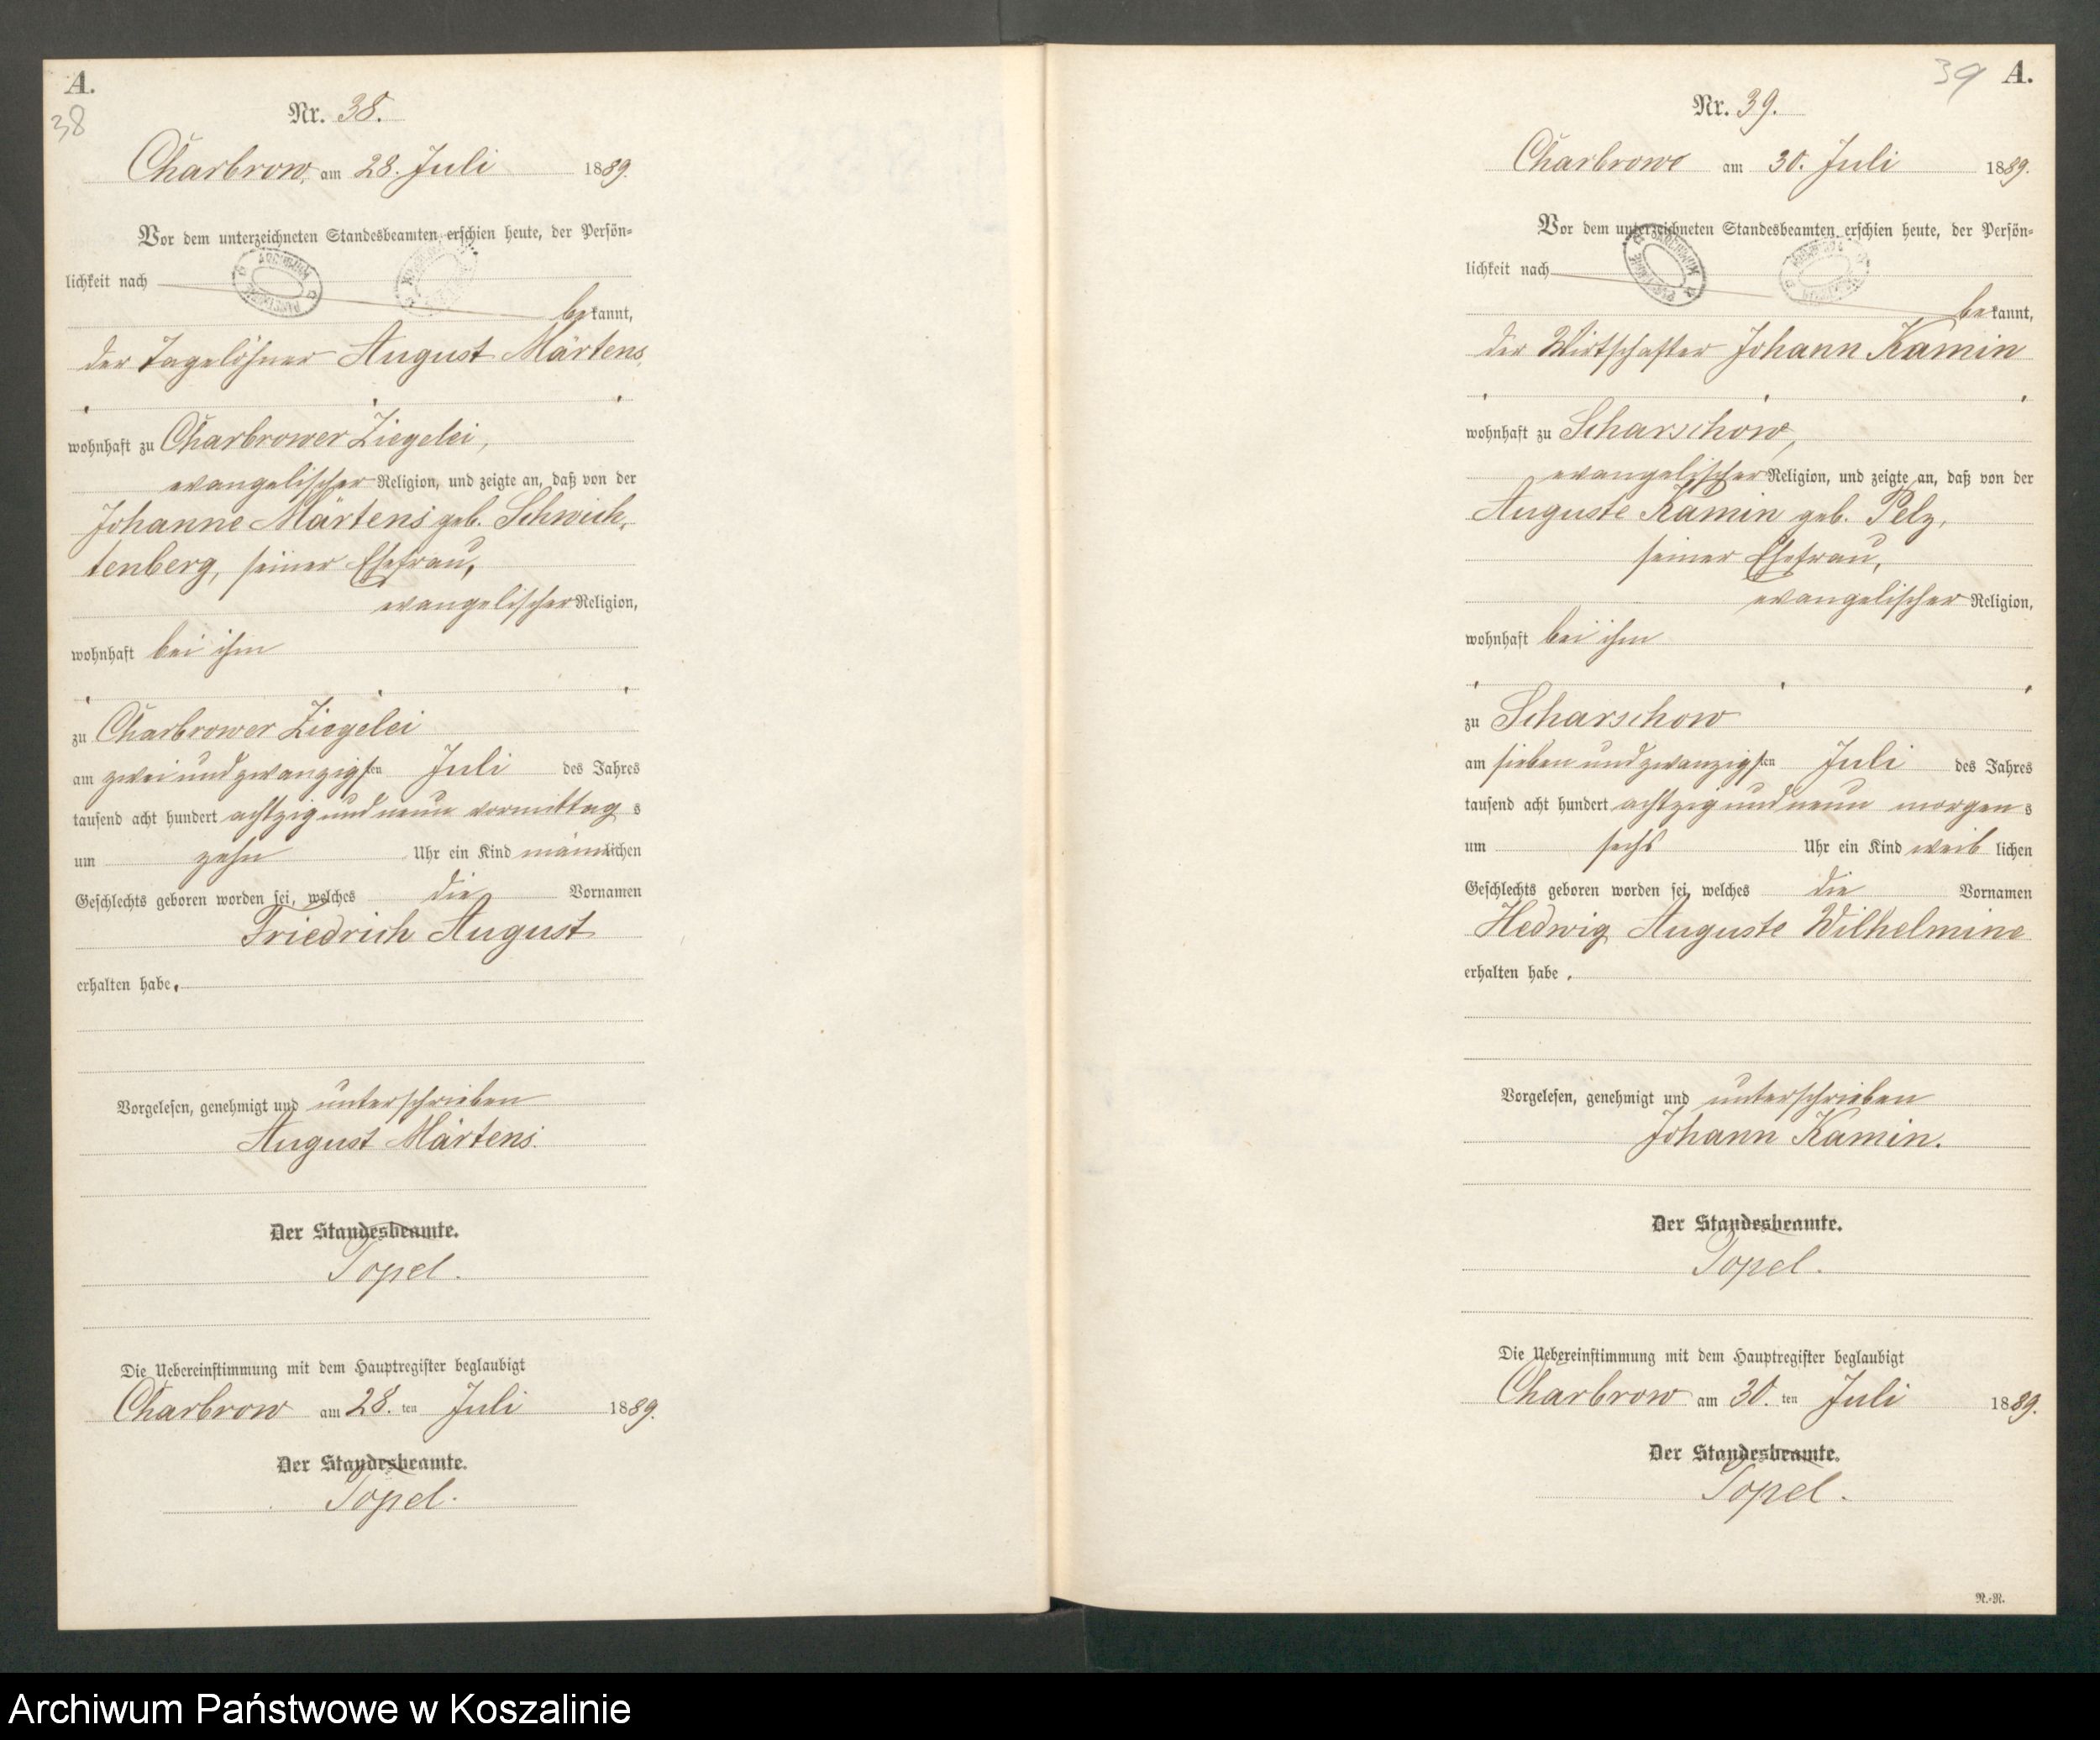 A.
38
Nr. 38.
Charbrow, am 28. Juli 1889.
Vor dem unterzeichneten Standesbeamten erschien heute, der Persön-
lichkeit nach
bekannt,
der Tagelöhner August Märtens,
wohnhaft zu Charbrower Ziegelei,
evangelischer Religion, und zeigte an, daß von der
Johanne Märtens geb. Schwich-
tenberg, seiner Ehefrau,
evangelischer Religion,
wohnhaft bei ihm
zu Charbrower Ziegelei
am zwei und zwanzigsten Juli des Jahres
tausend acht hundert achtzig und neun vormittag s
um zehn Uhr ein Kind männlichen
Geschlechts geboren worden sei, welches die Vornamen
Friedrich August
erhalten habe.
Vorgelesen, genehmigt und unterschrieben
August Märtens.
Der Standesbeamte.
Topel.
Die Uebereinstimmung mit dem Hauptregister beglaubigt
Charbrow am 28. ten Juli 1889.
Der Standesbeamte.
Topel.
39 A.
Nr. 39.
Charbrow am 30. Juli 1889.
Vor dem unterzeichneten Standesbeamten erschien heute, der Persön-
lichkeit nach
bekannt,
der Wirtschafter Johann Kamin
wohnhaft zu Scharschow,
evangelischer Religion, und zeigte an, daß von der
Auguste Kamin geb. Pelz,
seiner Ehefrau,
evangelischer Religion,
wohnhaft bei ihm
zu Scharschow
am sieben und zwanzigsten Juli des Jahres
tausend acht hundert achtzig und neun morgen s
um sechs Uhr ein Kind weib lichen
Geschlechts geboren worden sei, welches die Vornamen
Hedwig Auguste Wilhelmine
erhalten habe.
Vorgelesen, genehmigt und unterschrieben
Johann Kamin.
Der Standesbeamte.
Topel.
Die Uebereinstimmung mit dem Hauptregister beglaubigt
Charbrow am 30. ten Juli 1889.
Der Standesbeamte.
Topel.
R.-R.
Archiwum Państwowe w Koszalinie